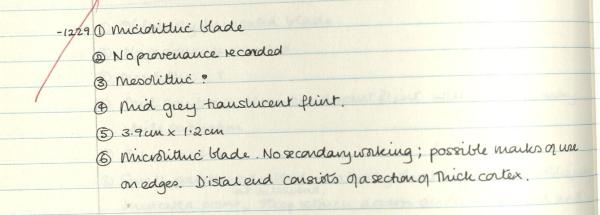 -1229 ① Microlithic blade
② No provenance recorded
③ Mesolithic ?
④ Mid grey translucent flint.
⑤ 3.9cm x 1.2cm
⑥ Microlithic blade. No secondary working; possible marks of use
on edges. Distal end consists of a section of thick cortex.